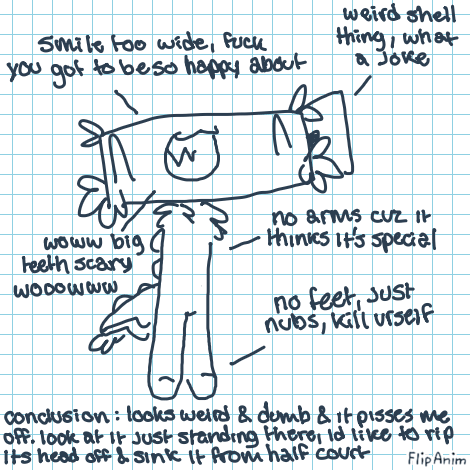 weird shell
thing, what
a joke
smile too wide, fuck
you got to be so happy about
no arms cuz it
thinks it's special
woww big
teeth scary
wooowww
no feet, just
nubs, kill urself
conclusion: looks weird & dumb & it pisses me
off. look at it just standing there, id like to rip
its head off & sink it from half court
FlipAnim